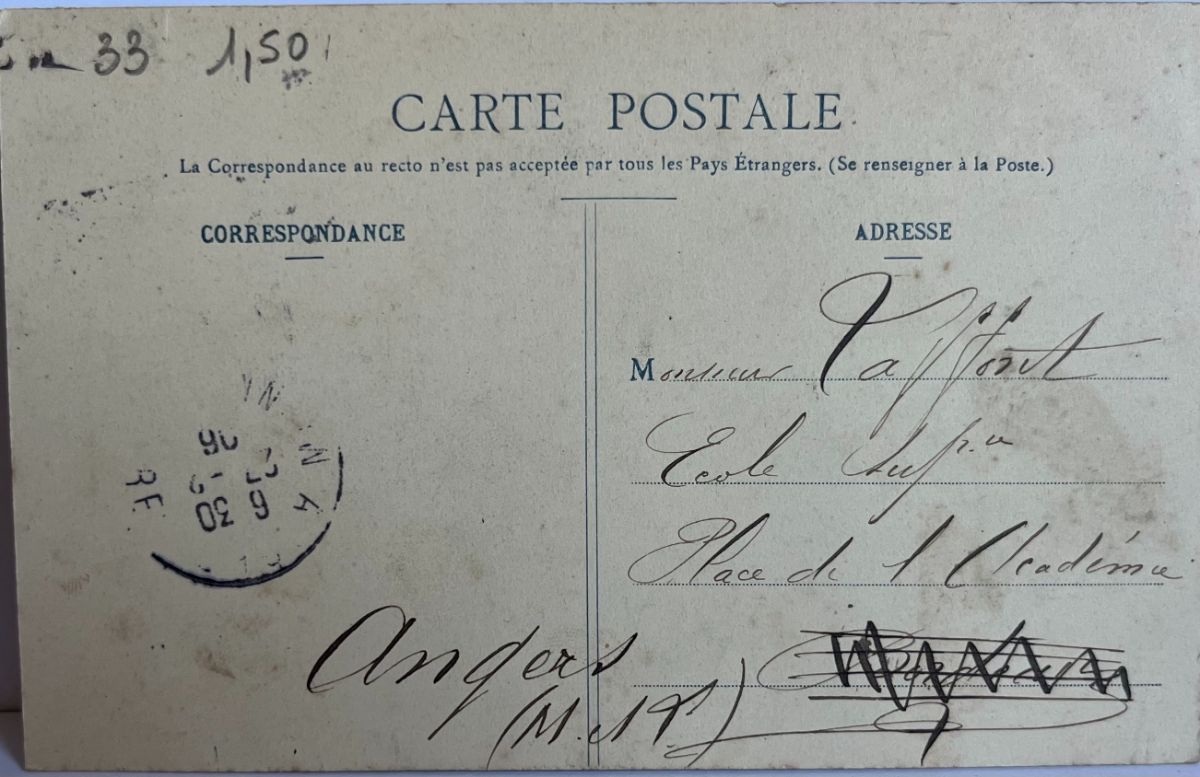 33 1,50
CARTE POSTALE
La Correspondance au recto n'est pas acceptée par tous les Pays Étrangers. (Se renseigner à la Poste.)
CORRESPONDANCE
ADRESSE
Monsieur Laffont
Ecole Supre
Place de l'Académie
Angers
(M. et L.)
6 30
06